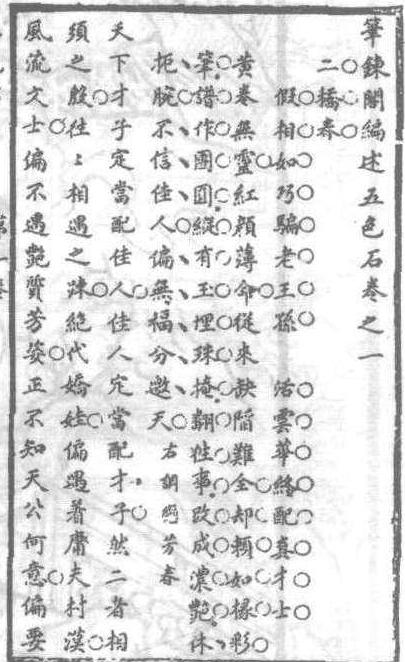 筆鍊閣編述五色石卷之一
二橋春
假相如巧騙老王孫　活雲華終配真才士
黃卷無靈紅顏薄命從來缺陷難全却賴如椽彩
筆譜作團圓縱有玉埋珠掩翻往事改成濃艷休
扼腕不信佳人偏無福分邀天　右調戀芳春
天下才子定當配佳人佳人定當配才子然二者相
須之殷往〻相遇之踈絕代嬌娃偏遇着庸夫村漢
風流文士偏不遇艷質芳姿正不知天公何意偏要